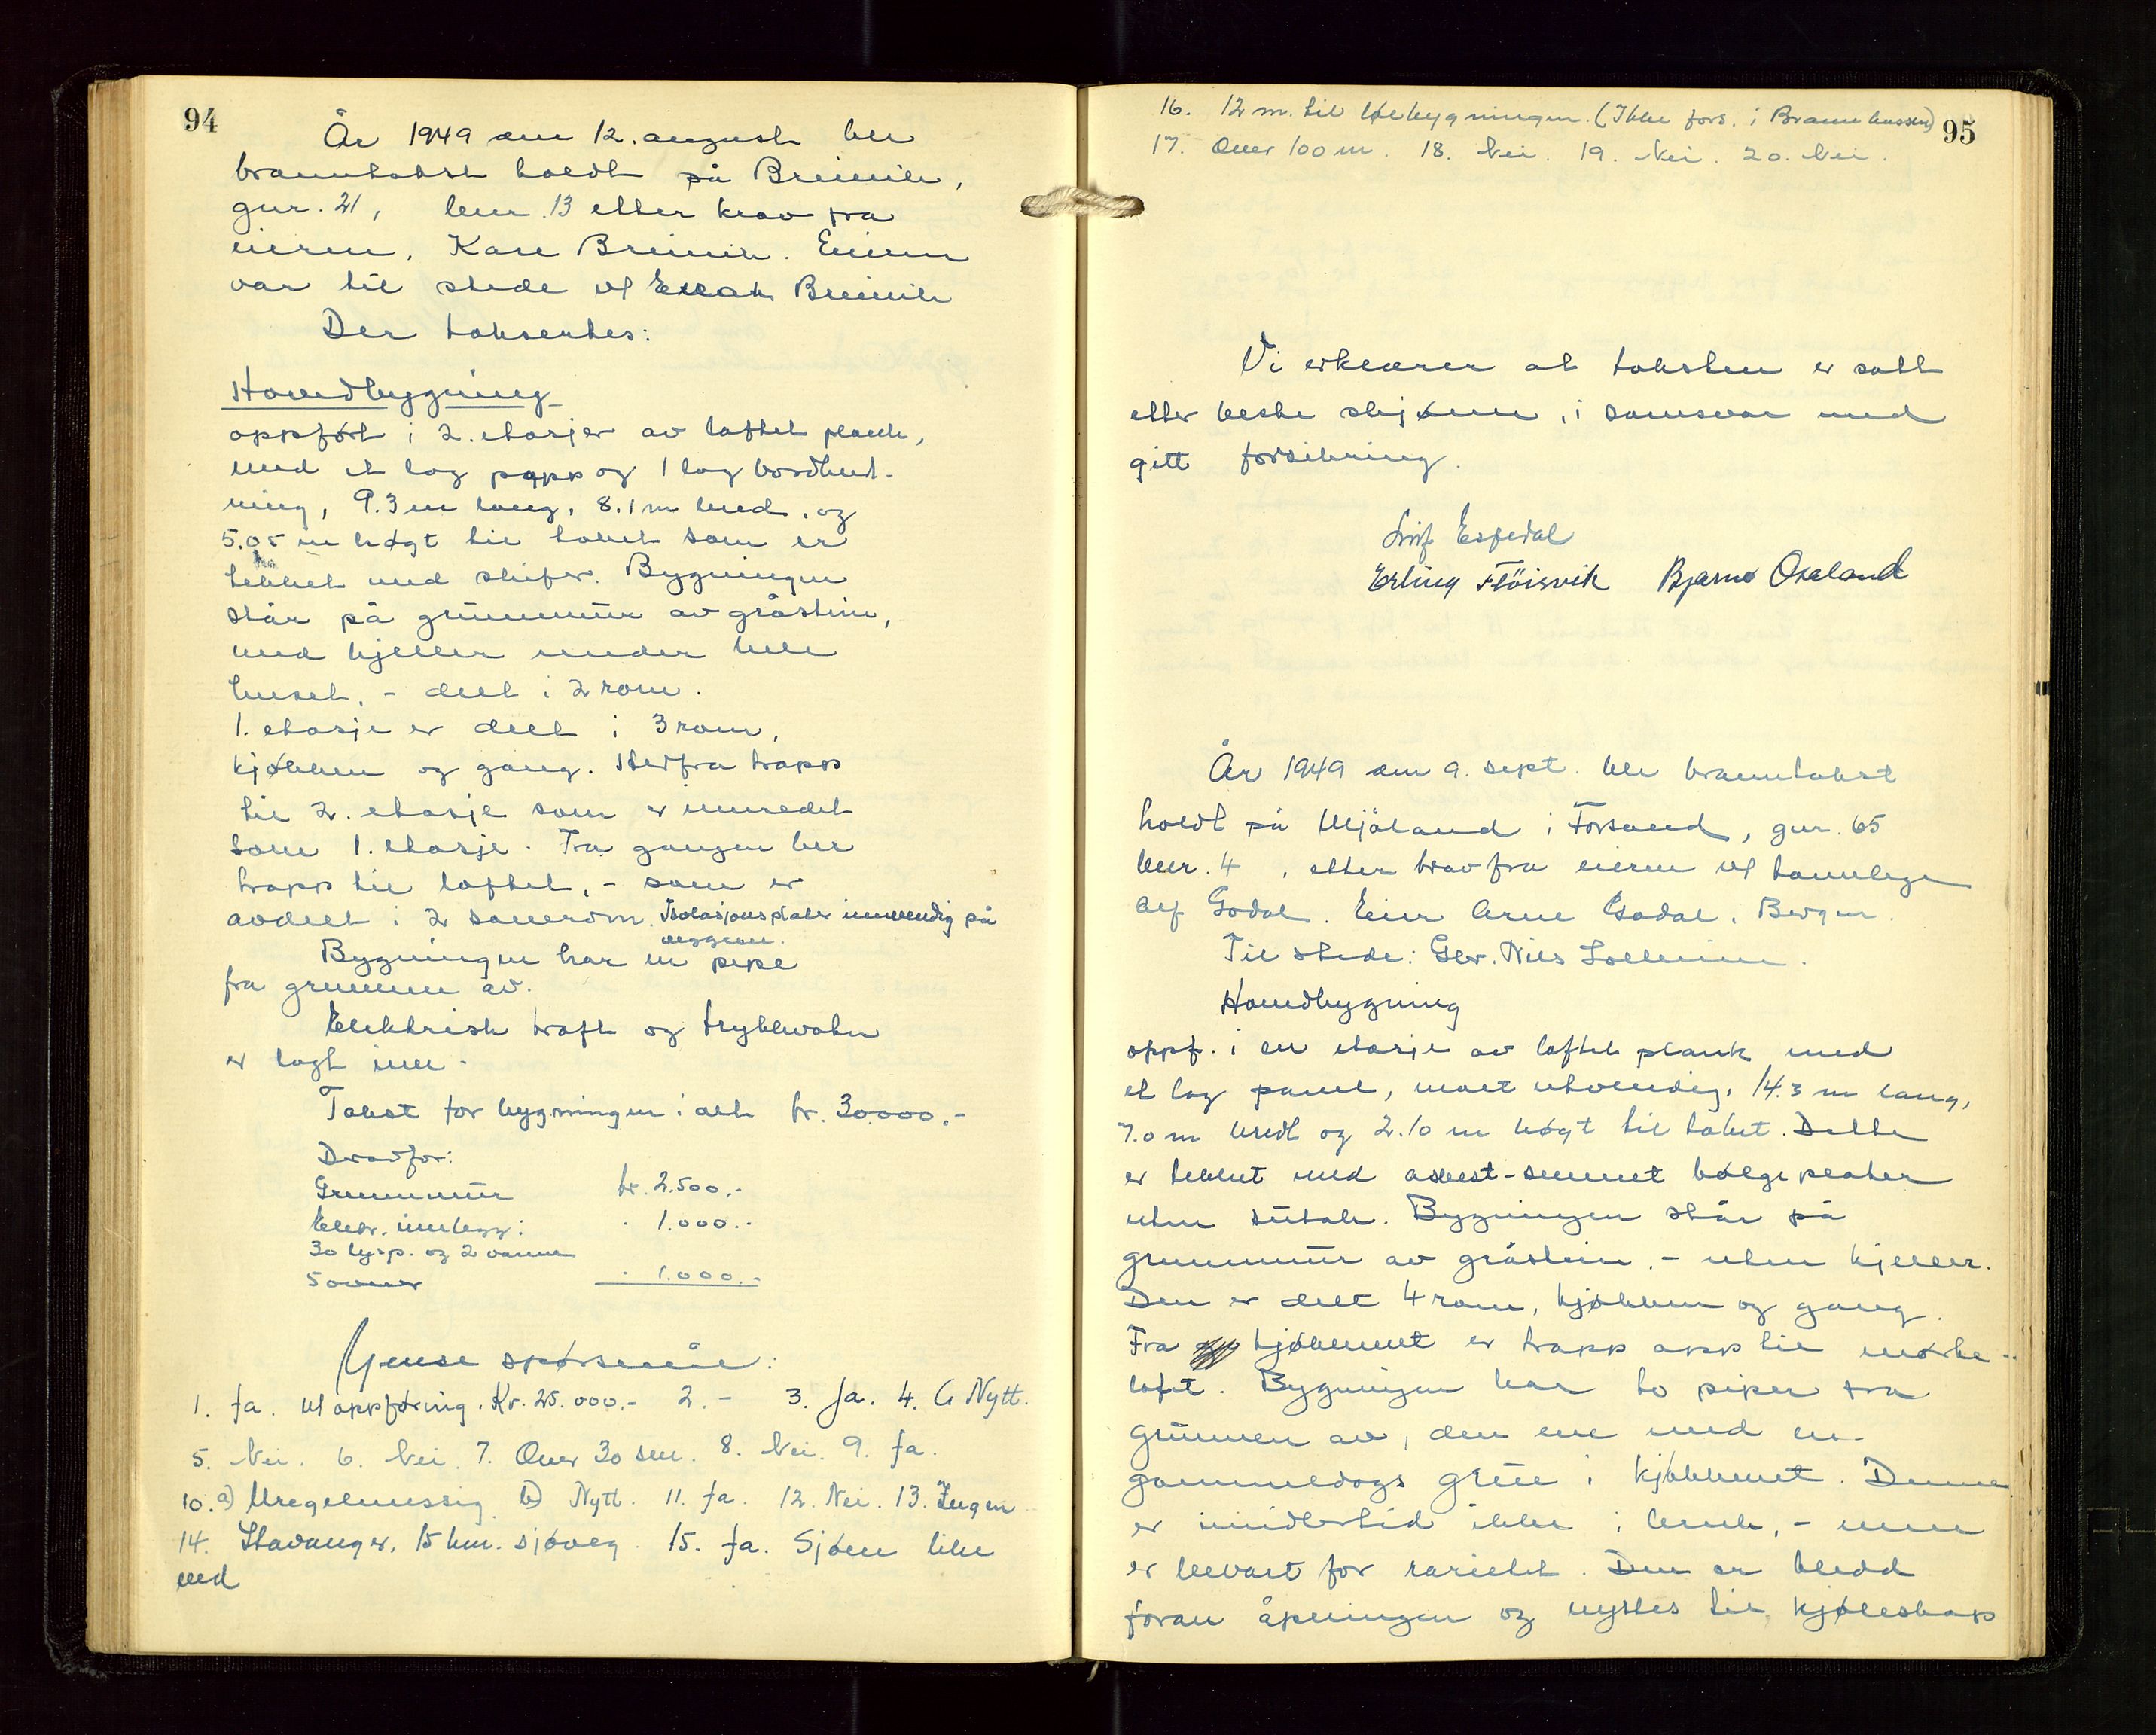 94
År 1949 den 12. august ble
branntakst holdt på Breivik,
gnr. 21, bnr. 13 etter krav fra
eieren, Kåre Breivik. Eieren
var til stede vl Breivik
Der taksertes:
Hovedbygning
oppført i 2. etasjer av laftet plank,
med et lag papp og 1 lag bordkled-
ning, 9.3 m lang, 8.1 m bred, og
5.05 m høgt til taket som er
tekket med skifer. Bygningen
står på grunnmur av gråstein,
med kjeller under hele
huset, - delt i 2 rom.
1. etasje er delt i 3 rom,
kjøkken og gang. Herfra trapp
til 2. etasje som er innredet
som 1. etasje. Fra gangen her
trapp til loftet, - som er
avdelt i 2 soverom. Isolasjonsplater innvendig på
veggene.
Bygningen har en pipe
fra grunnen av.
Elektrisk kraft og trykkvatn
er lagt inn.
Takst for bygningen i alt kr. 30.000.-
Deravfor:
Grunnmur kr. 2.500.-
Elektr. innlegg: " 1.000.-
30 lysp. og 2 varme
5 ovner " 1.000.-
Ymse spørsmål:
1. Ja. vl oppføring. Kr. 25.000.- 2. - 3. Ja. 4. Nytt.
5. Nei. 6. Nei. 7. Over 30 sm. 8. Nei. 9. Ja.
10. a) Uregelmessig b) Nytt. 11. Ja. 12. Nei. 13. Ingen
14. Stavanger, 15 km. sjøveg. 15. Ja. Sjøen like
ved
95
16. 12 m. til løebygningen. (Ikke fors. i Brannkassen)
17. Over 100 m. 18. Nei. 19. Nei. 20. Nei.
Vi erklærer at taksten er satt
etter beste skjønn, i samsvar med
gitt forsikring.
Leif Espedal
Erling Fløisvik Bjarne Oxaland
År 1949 den 9. sept. ble branntakst
holdt på Mjåland i Forsand, gnr. 65
bnr. 4, etter krav fra eieren vl tannlege
Alf Godal. Eier Arne Godal, Bergen.
Til stede: Gbr. Nils
Hovedbygning
oppf. i en etasje av laftet plank med
et lag panel, malt utvendig, 14.3 m lang,
7.0 m bredt og 2.10 m høgt til taket. Dette
er tekket med asbest-sement bølgeplater
uten sutak. Bygningen står på
grunnmur av gråstein, - uten kjeller.
Den er delt 4 rom, kjøkken og gang.
Fra kjøkkenet er trapp opp til mørke-
loft. Bygningen har to piper fra
grunnen av, den ene med en
gammeldags grue i kjøkkenet. Denne
er imidlertid ikke i bruk, - men
er bevart for raritet. Den er kledd
foran åpningen og nyttes til kjøleskap